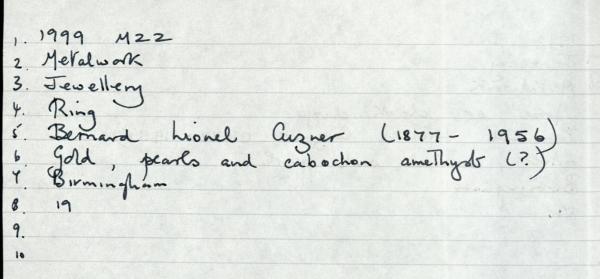 1. 1999 M22
2. Metalwork
3. Jewellery
4. Ring
5. Bernard Lionel Cuzner (1877 - 1956)
6. Gold, pearls and cabochon amethyst (?)
7. Birmingham
8. 19
9.
10